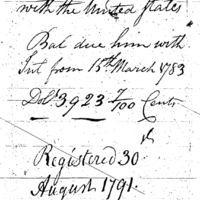 with the United States
Bal due him with
Int from 15th March 1783
Dols 3923 7/100 Cents
Registered 30
August 1791.